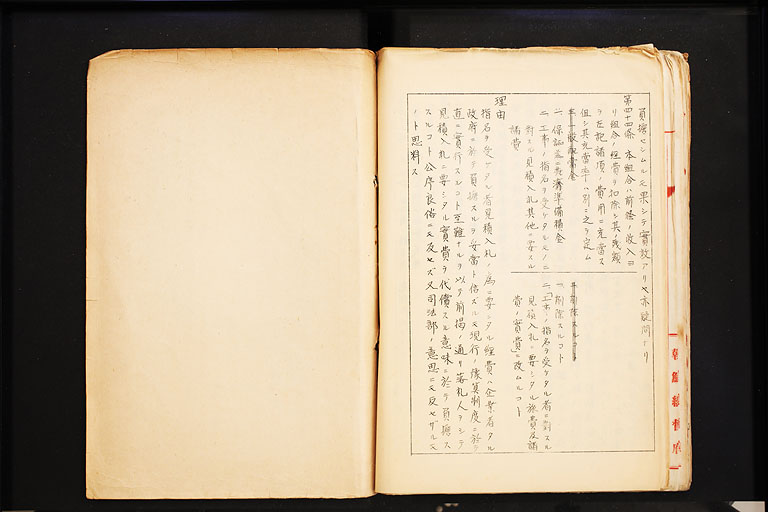 員擔セシムルモ果シテ實效アリヤ亦疑問ナリ
第四十四條 本組合ハ前條ノ收入ヨ
リ組合ノ經費ヲ扣除シ其ノ殘額
ヲ左記諸項ノ費用ニ充當ス
但シ其充當率ハ別ニ之ヲ定ム
一、保證並ニ救濟準備積金
二、工事ノ指名ヲ受ケタルモノニ
對スル見積入札其他ニ要スル
諸費
一、削除スルコト
二、「工事ノ指名ヲ受ケタル者ニ對スル
見積入札ニ要シタル旅費及諸
費ノ實費」ニ改ムルコト
理由
指名ヲ受ケタル者見積入札ノ爲ニ要シタル經費ハ企業者タル
政府ニ於テ員擔スルヲ妥當ト信ズルモ現行ノ豫算制度ニ於テ
直ニ實行スルコト至難ナルヲ以テ前揭ノ通リ落札人ヲシテ
見積入札ニ要シタル實費ヲ代償スル意味ニ於テ員擔ス
スルコト公序良俗ニモ反セズ又司法部ノ意思ニモ反セザルモ
ノト思料ス